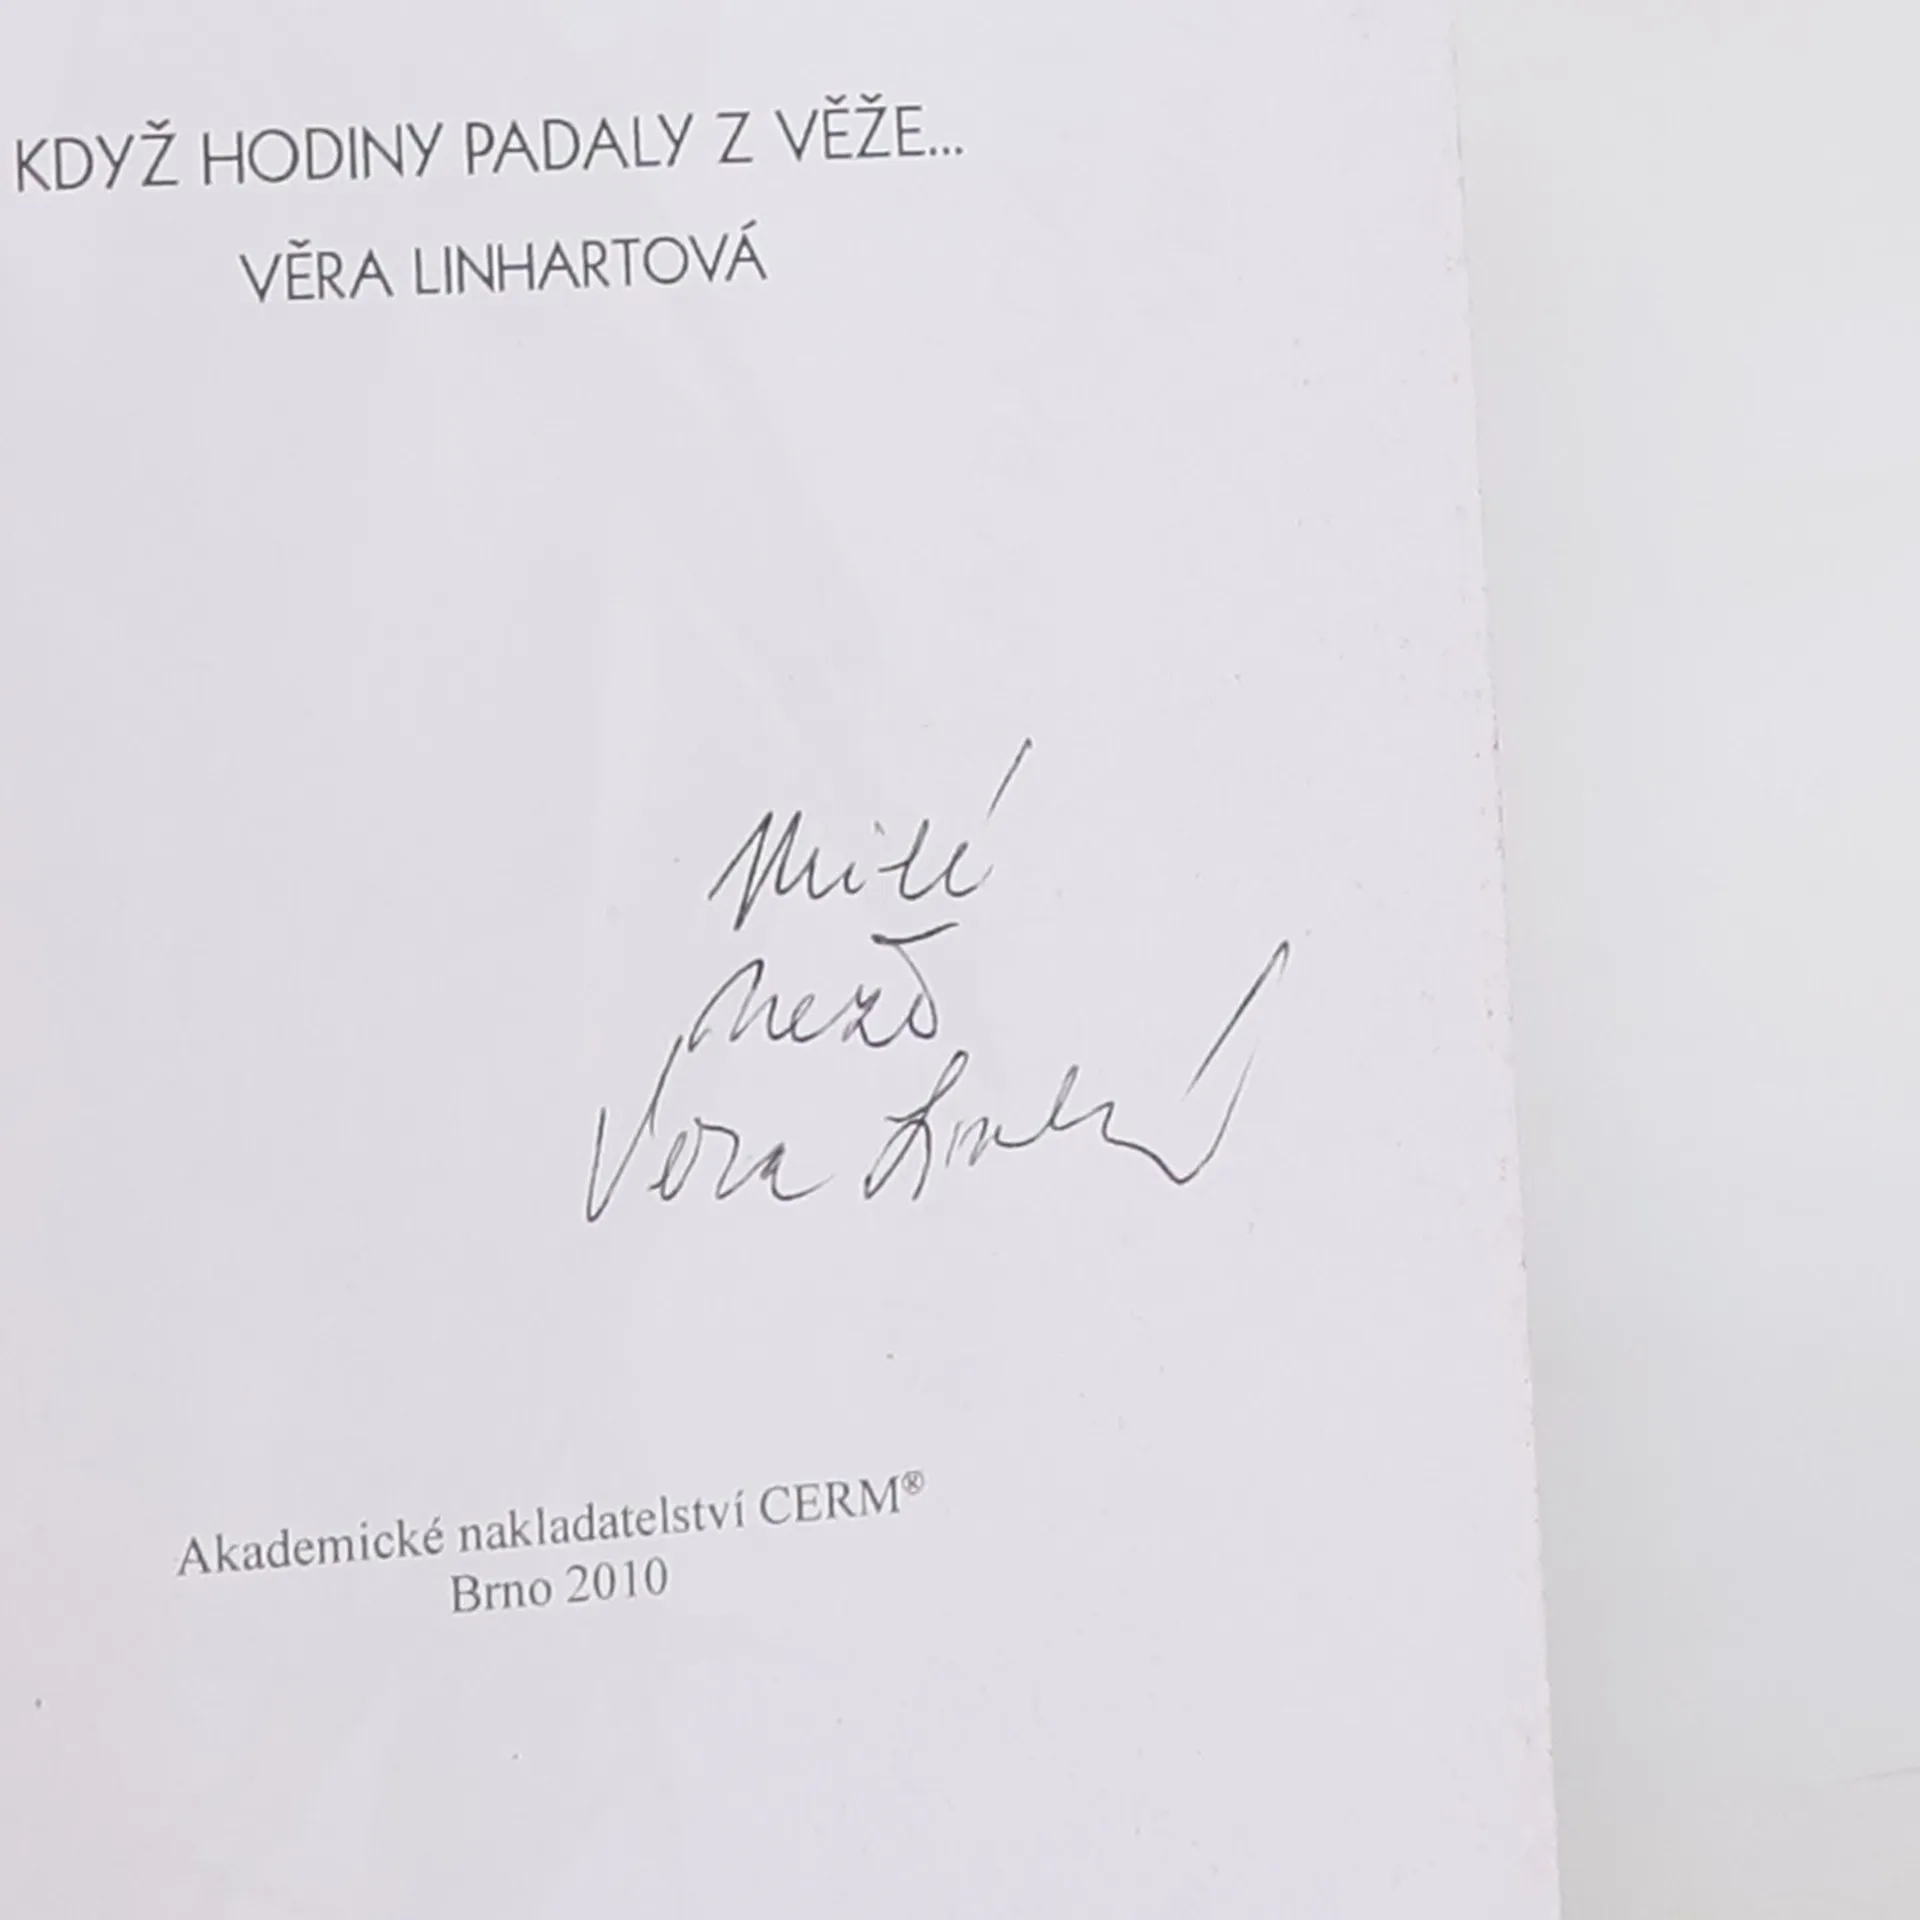 KDYŽ HODINY PADALY Z VĚŽE...
VĚRA LINHARTOVÁ
Milé
Věra
Akademické nakladatelství CERM®
Brno 2010